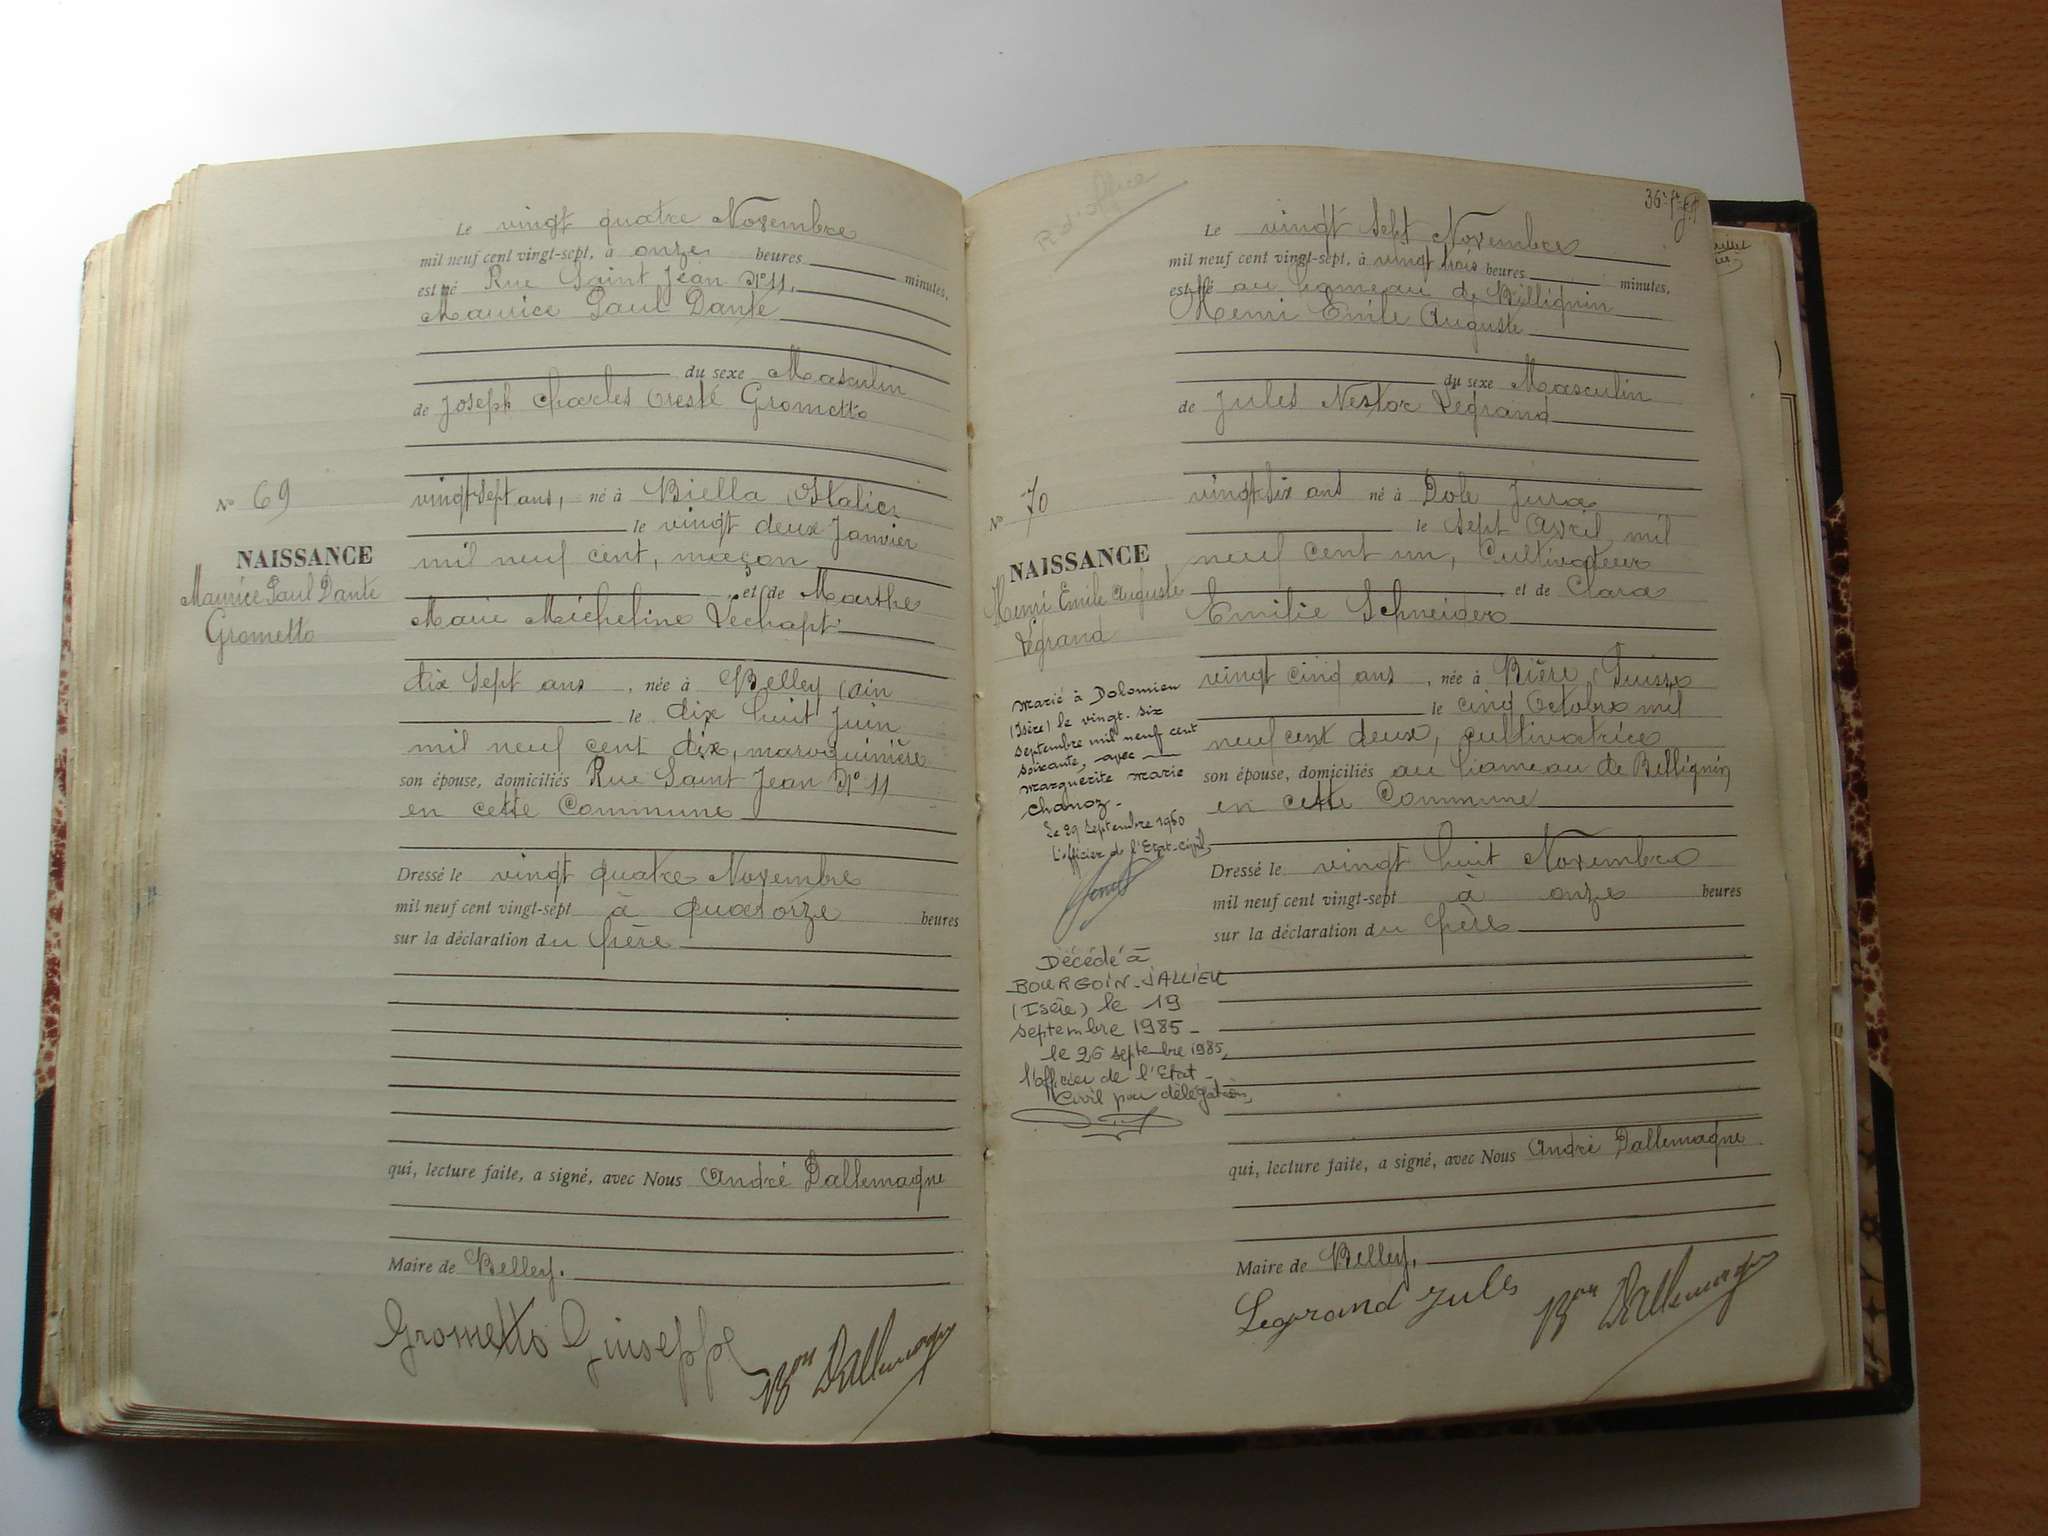 Le vingt quatre Novembre
mil neuf cent vingt-sept, à onze heures minutes,
est né Rue Saint Jean N° 11,
Maurice Paul Dante
du sexe Masculin
de Joseph Charles Oreste Grometto
N° 69
vingt sept ans, né à Biella (Italie
le vingt deux Janvier
NAISSANCE
mil neuf cent, maçon
Maurice Paul Dante
et de Marthe
Grometto
Marie Micheline Lechapt
dix sept ans, née à Belley (Ain
le dix huit Juin
mil neuf cent dix, maroquinière
son épouse, domiciliés Rue Saint Jean N° 11
en cette Commune
Dressé le vingt quatre Novembre
mil neuf cent vingt-sept à quatorze heures
sur la déclaration du père
qui, lecture faite, a signé, avec Nous André Dallemagne
Maire de Belley.
Grometto Giuseppe
Bon Dallemagne
R. d'office
36e
Le vingt sept Novembre
mil neuf cent vingt-sept, à vingt trois heures minutes,
est né au hameau de Billignin
Henri Emile Auguste
du sexe Masculin
de Jules Nestor Legrand
N° 70
vingt six ans né à Dole Jura
le sept Avril mil
NAISSANCE
neuf cent un, Cultivateur
Henri Emile Auguste
Legrand
et de Clara
Emilie Schneider
vingt cinq ans, née à Bière, Suisse
le cinq Octobre mil
neuf cent deux, cultivatrice
son épouse, domiciliés au hameau de Billignin
en cette Commune
marié à Dolomieu
(Isère) le vingt-six
septembre mil neuf cent
soixante, avec
marguerite marie
chanoz-
Le 29 Septembre 1960
L'officier de l'Etat-Civil,
Dressé le vingt huit Novembre
mil neuf cent vingt-sept à onze heures
sur la déclaration du père
Décédé à
BOURGOIN-JALLIEU
(Isère) le 19
septembre 1985-
le 26 septembre 1985,
l'officier de l'Etat-
Civil par délégation,
qui, lecture faite, a signé, avec Nous André Dallemagne
Maire de Belley,
Legrand Jules
Bon Dallemagne